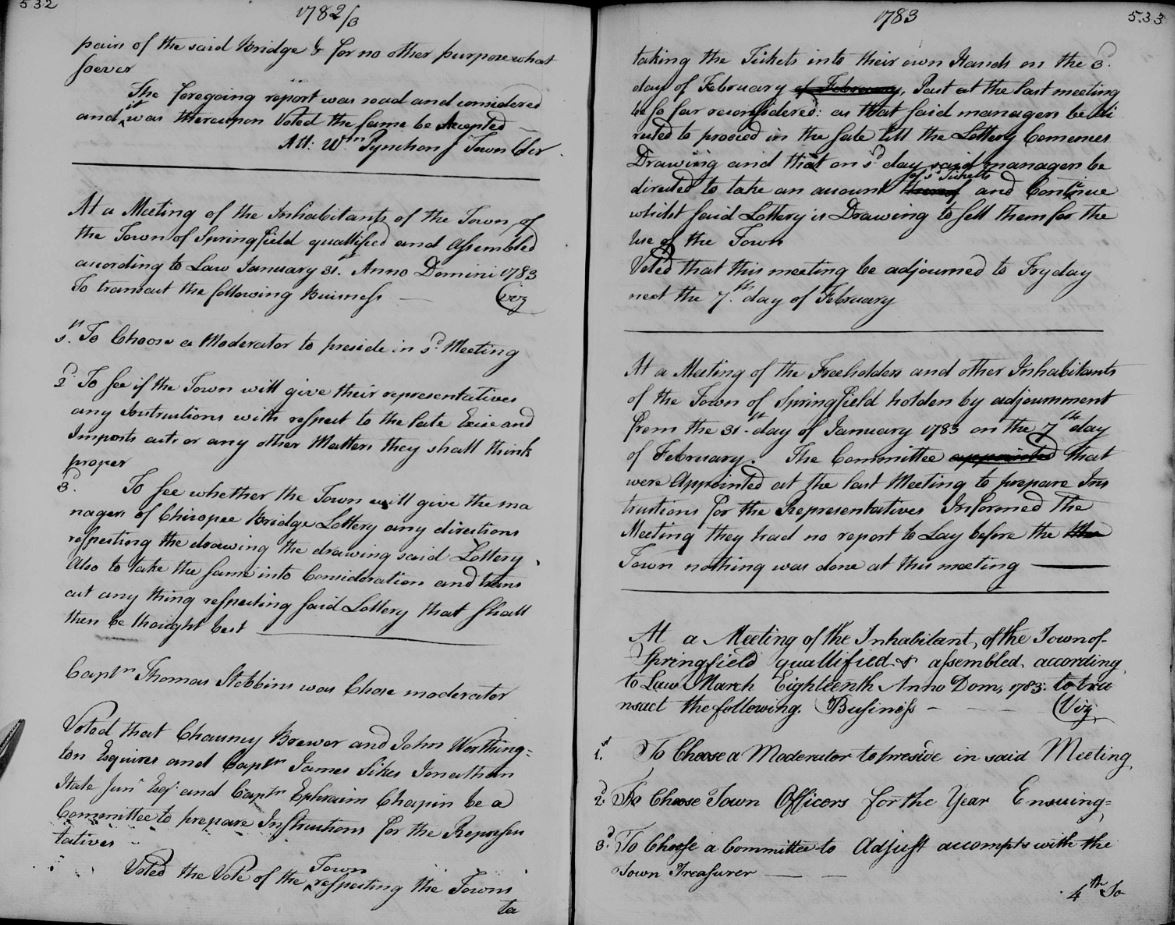 532
1782/3
pairs of the said Bridge & for no other purpose what
soever
The foregoing report was read and considered
and it was thereupon Voted the same be Accepted
Att: Wm Pynchon J Town Cler
At a Meeting of the Inhabitants of the Town of
the Town of Springfield quallified and Assembled
according to Law January 31st. Anno Domini 1783
To transact the following Buisness (viz
1st. To Choose a Moderator to preside in sd. Meeting
2d To see if the Town will give their representatives
any Instructions with respect to the late Excise and
Imposts acts or any other Matters they shall think
proper
3d. To see whether the Town will give the ma
nagers of Chicopee Bridge Lottery any directions
respecting the drawing the drawing said Lottery
Also to take the same into Consideration and trans
act any thing respecting said Lottery that shall
then be thought best
Captn Thomas Stebbins was Chose moderator
Voted that Chauncy Brewer and John Worthing=
ton Esquires and Captn James Sikes Jonathan
Hale Junr Esqr and Captn Ephraim Chapin be a
Committee to prepare Instructions for the Represen
tatives
Voted the Vote of the Town respecting the Towns
ta
1783
533
taking the Tickets into their own Hands on the 3d.
day of February of February, Past at the last meeting
be so far reconsidered: as that said managers be di
rected to proceed in the Sale till the Lottery Comences
Drawing and that on sd day said managers be
directed to take an account of sd Tickets and Continue
whilst said Lottery is Drawing to sell them for the
Use of the Town
Voted that this meeting be adjourned to Fryday
next the 7th. day of February
At a Meeting of the Freeholders and other Inhabitants
of the Town of Springfield holden by adjournment
from the 31st day of January 1783 on the 7th day
of February. The Committee appointed that
were Appointed at the last Meeting to prepare Ins
tructions for the Representatives Informed the
Meeting they had no report to Lay before the the
Town nothing was done at this meeting
At a Meeting of the Inhabitant, of the Town of
Springfield quallified & assembled according
to Law March Eighteenth Anno Dom, 1783. to tra
nsact the following. Business (Viz,
1st. To Choose a Moderator to preside in said Meeting
2d. To Choose Town Officers for the Year Ensuing=
3d. To Choose a Committee to Adjust accompts with the
Town Treasurer
4th To